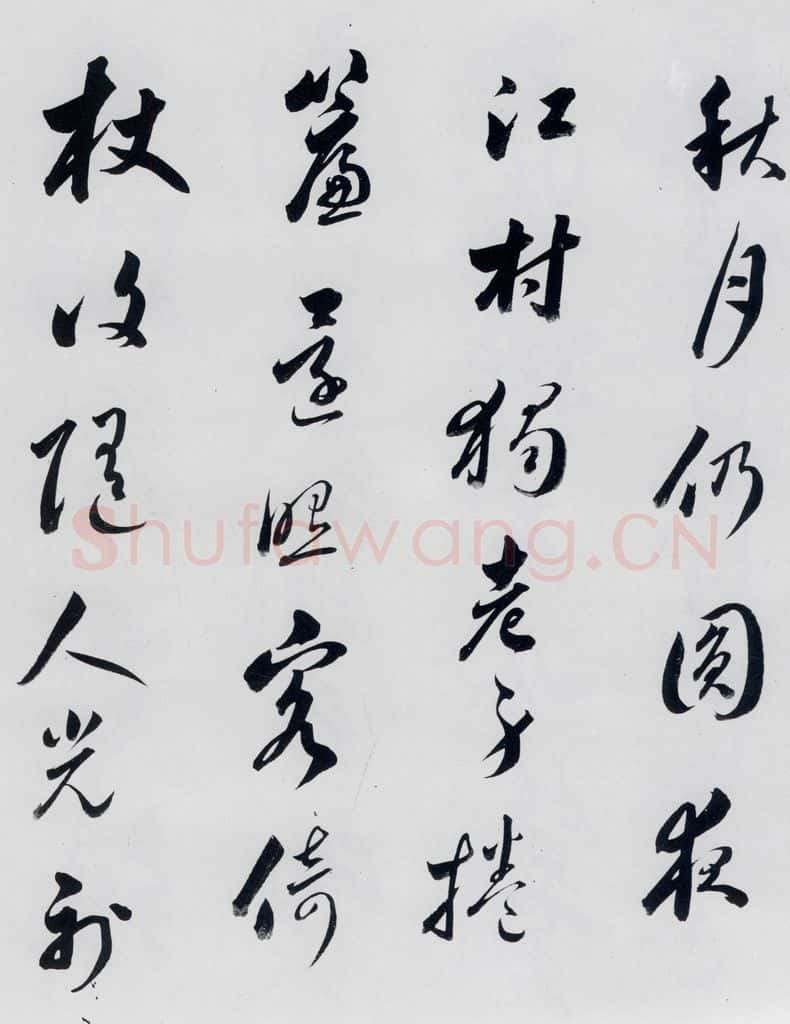 秋月仍圓夜
江村獨老身捲
簾還照客倚
杖復隨人光射
Shufawang.CN